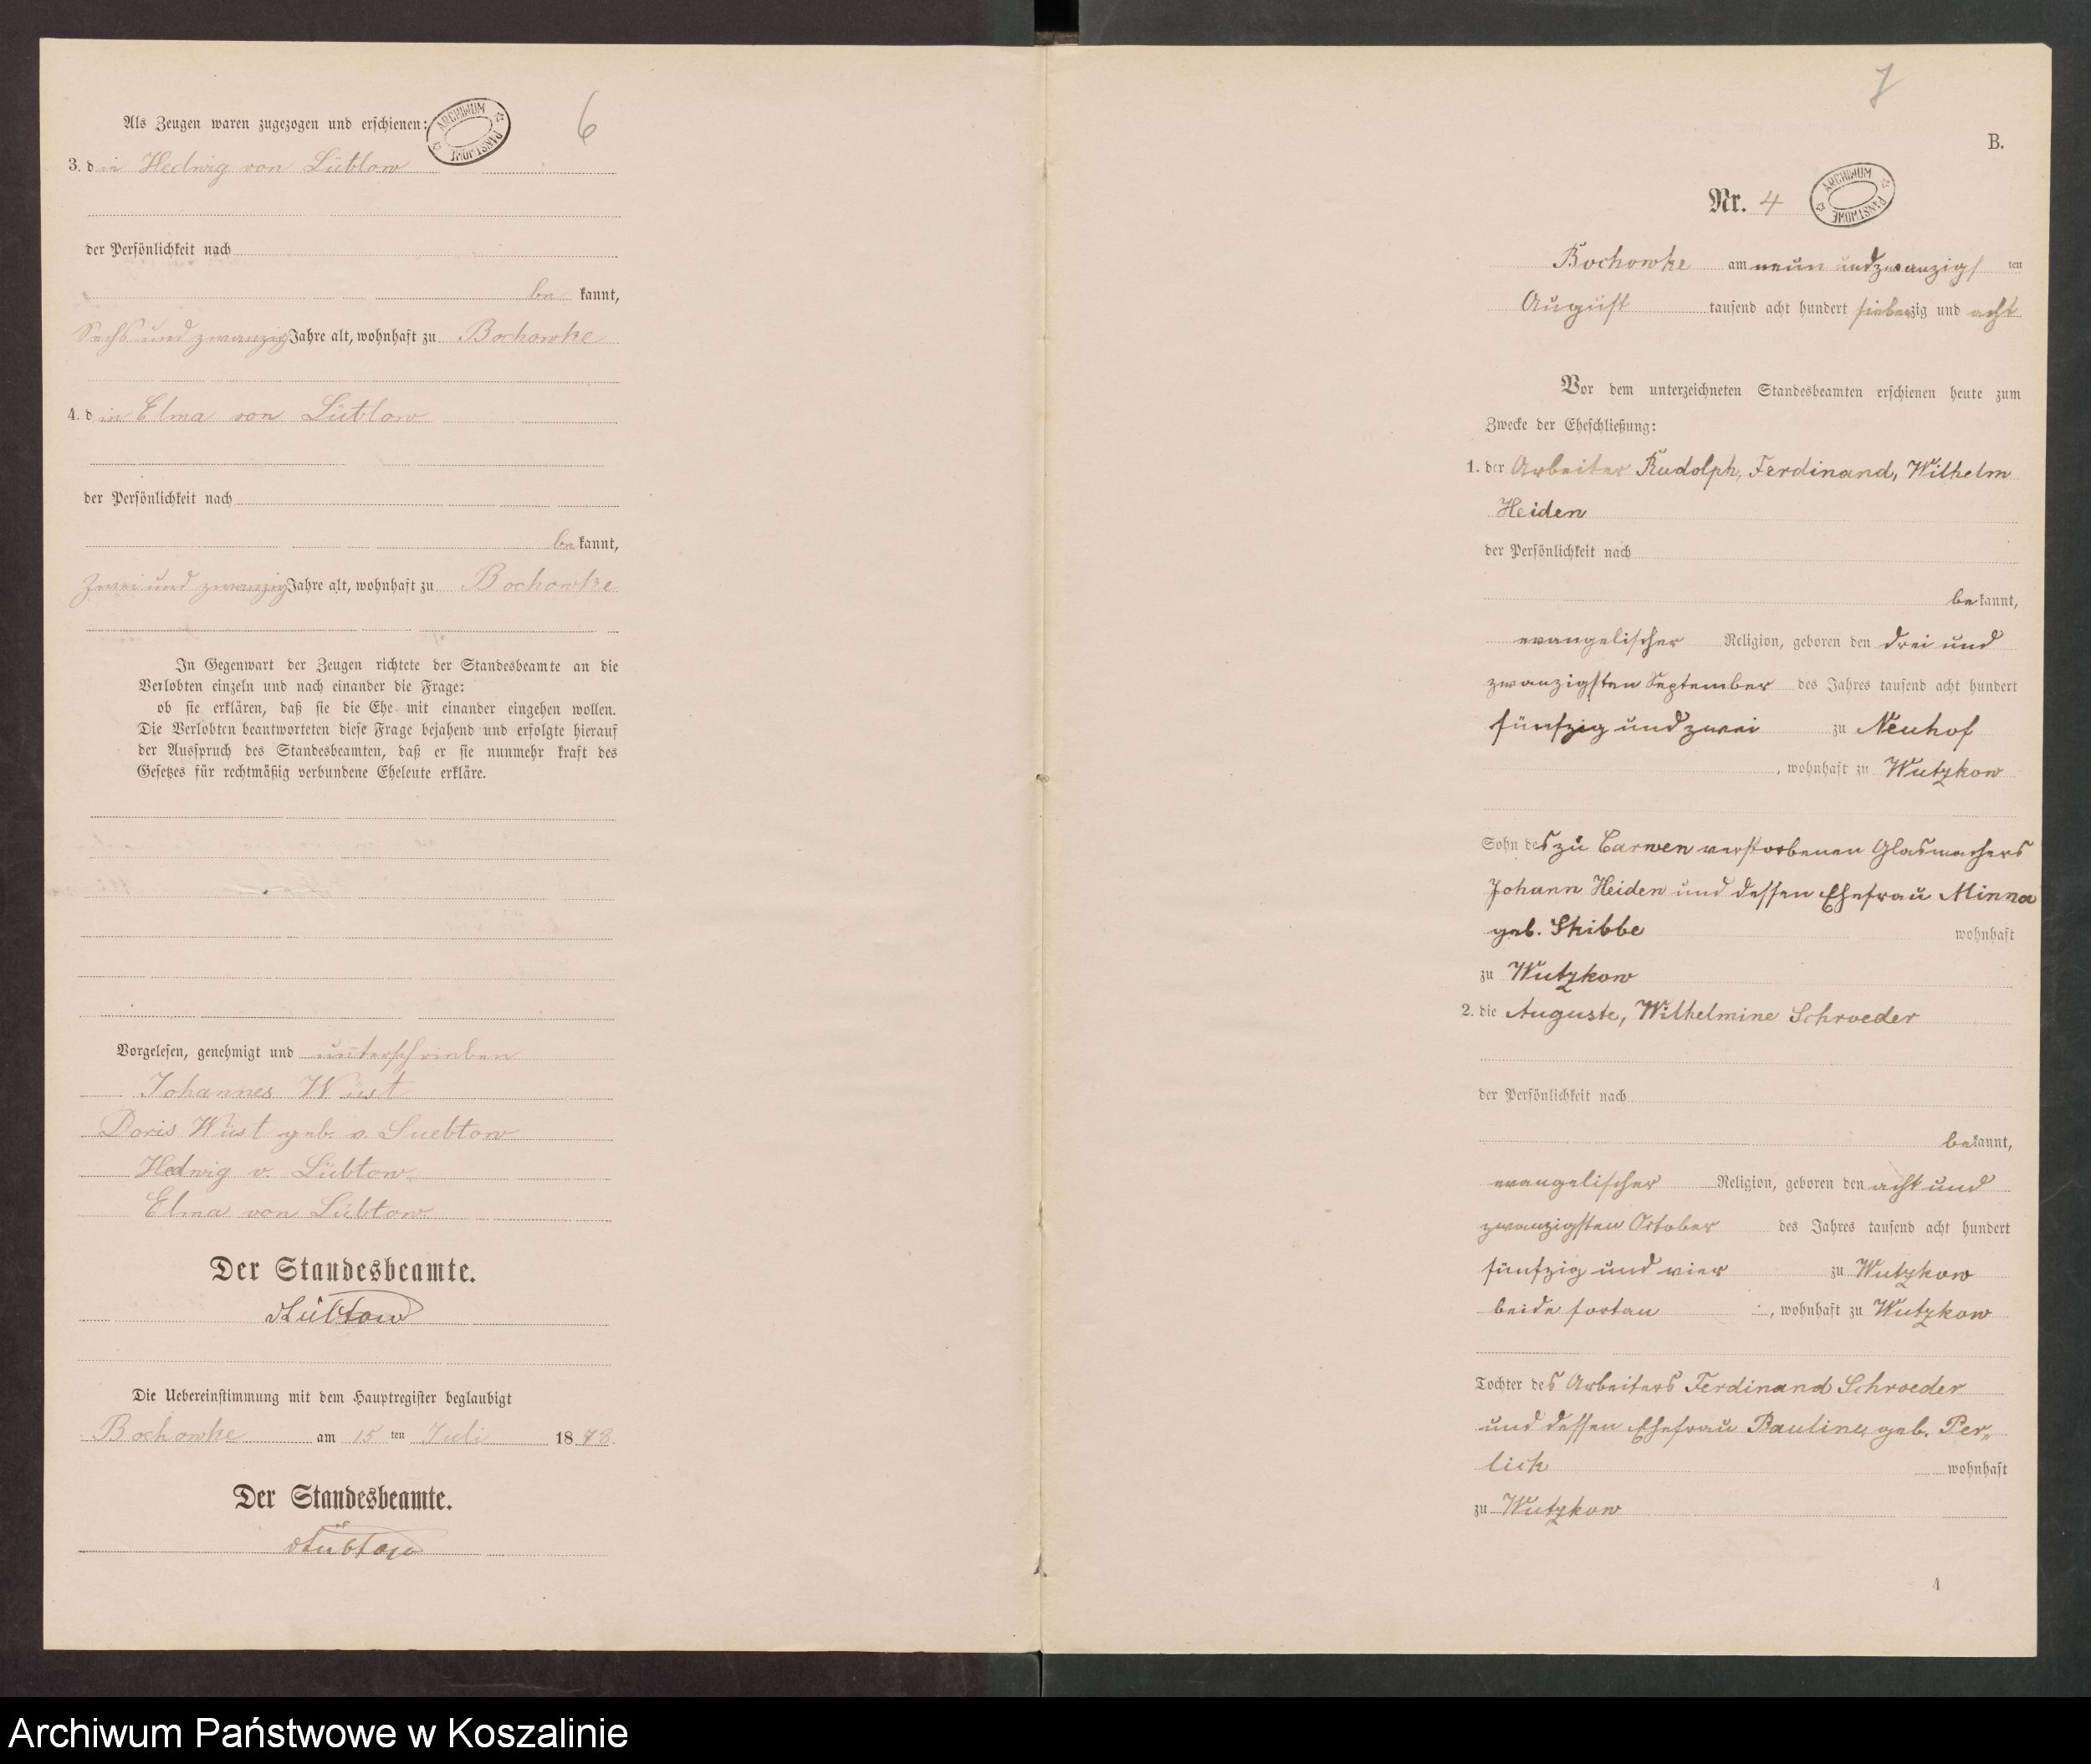 6
Als Zeugen waren zugezogen und erschienen:
ARCHIWUM PAŃSTWOWE
3. die Hedwig von Lübtow
der Persönlichkeit nach
be kannt,
Sechs und zwanzig Jahre alt, wohnhaft zu Bochowke
4. die Elma von Lübtow
der Persönlichkeit nach
be kannt,
zwei und zwanzig Jahre alt, wohnhaft zu Bochowke
In Gegenwart der Zeugen richtete der Standesbeamte an die
Verlobten einzeln und nach einander die Frage:
ob sie erklären, daß sie die Ehe mit einander eingehen wollen.
Die Verlobten beantworteten diese Frage bejahend und erfolgte hierauf
der Ausspruch des Standesbeamten, daß er sie nunmehr kraft des
Gesetzes für rechtmäßig verbundene Eheleute erkläre.
Vorgelesen, genehmigt und unterschrieben
Johannes Wüst
Doris Wüst geb. v. Luebtow
Hedwig v. Lübtow
Elma von Lübtow
Der Standesbeamte.
v Lübtow
Die Uebereinstimmung mit dem Hauptregister beglaubigt
Bochowke am 15 ten Juli 18 78.
Der Standesbeamte.
v Lübtow
7
B.
Nr. 4
ARCHIWUM PAŃSTWOWE
Bochowke am neun und zwanzigs ten
August tausend acht hundert siebenzig und acht
Vor dem unterzeichneten Standesbeamten erschienen heute zum
Zwecke der Eheschließung:
1. der Arbeiter Rudolph, Ferdinand, Wilhelm
Heiden
der Persönlichkeit nach
be kannt,
evangelischer Religion, geboren den drei und
zwanzigsten September des Jahres tausend acht hundert
fünfzig und zwei zu Neuhof
, wohnhaft zu Wutzkow
Sohn des zu Carwen verstorbenen Glasmachers
Johann Heiden und dessen Ehefrau Minna
geb. Skibbe wohnhaft
zu Wutzkow
2. die Auguste, Wilhelmine Schroeder
der Persönlichkeit nach
be kannt,
evangelischer Religion, geboren den acht und
zwanzigsten October des Jahres tausend acht hundert
fünfzig und vier zu Wutzkow
, wohnhaft zu Wutzkow
Tochter des Arbeiters Ferdinand Schroeder
und dessen Ehefrau Pauline, geb. Per„
lick wohnhaft
zu Wutzkow
4
Archiwum Państwowe w Koszalinie